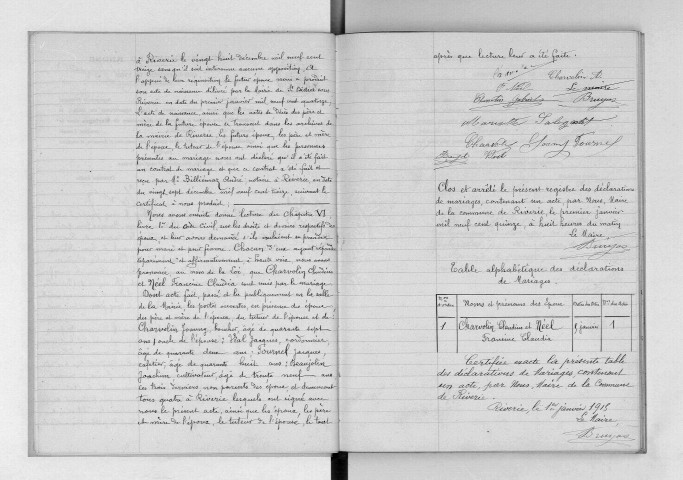 à Riverie le vingt huit décembre mil neuf cent
treize sans qu'il soit intervenu aucune opposition, et
l'appui de leur réquisition le futur époux nous a produit
son acte de naissance délivré par la Mairie de St Didier sous
Riverie en date du premier janvier mil neuf cent quatorze.
L'acte de naissance, ainsi que les actes de décès des père et
mère de la future épouse se trouvent dans les archives de
la mairie de Riverie, les futurs époux, les père et mère
de l'époux, le tuteur de l'épouse ainsi que les personnes
présentes au mariage nous ont déclaré qu'il a été fait
un contrat de mariage et que ce contrat a été fait et
reçu par Me Billiemaz André notaire à Riverie, en date
du vingt sept décembre mil neuf cent treize, suivant le
certificat à nous produit.
Nous avons ensuite donné lecture du Chapitre VI
livre 1er du Code Civil, sur les droits et devoirs respectifs des
époux, et leur avons demandé s'ils veulent se prendre
pour mari et pour femme. Chacun d'eux ayant répondu
séparément et affirmativement à haute voix, nous avons
prononcé au nom de la loi que Charvolin Claudius
et Néel Francine Claudia sont unis par le mariage.
Dont acte fait, passé et lu publiquement en la salle
de la Mairie, les portes ouvertes, en présence des époux,
des père et mère de l'époux, du tuteur de l'épouse et de :
Charvolin Joanny, boucher, âgé de quarante sept
ans, oncle de l'époux ; Vial Jacques, cordonnier,
âgé de quarante deux ans ; Fournel Jacques,
cafetier, âgé de quarante huit ans ; Beaujolin
Joachim cultivateur, âgé de trente neuf ans
ces trois derniers non parents des époux, et demeurant
tous quatre à Riverie lesquels ont signé avec
nous le présent acte, ainsi que les époux, les père
et mère de l'époux, le tuteur de l'épouse, le tout
après que lecture leur a été faite.
Charvolin
Le Maire
Bruyas
Mariette
Fournel
Clos et arrêté le présent registre des déclarations
de mariages, contenant un acte, par Nous, Maire
de la commune de Riverie, le premier janvier
mil neuf cent quinze, à huit heures du matin
Le Maire
Bruyas
Table alphabétique des déclarations
de Mariages.
Noms et prénoms des époux
1 Charvolin Claudius et Néel 8 janvier 1
Francine Claudia
Certifiée exacte la présente table
des déclarations de Mariages contenant
un acte, par Nous, Maire de la Commune
de Riverie.
Riverie, le 1er janvier 1915
Le Maire,
Bruyas